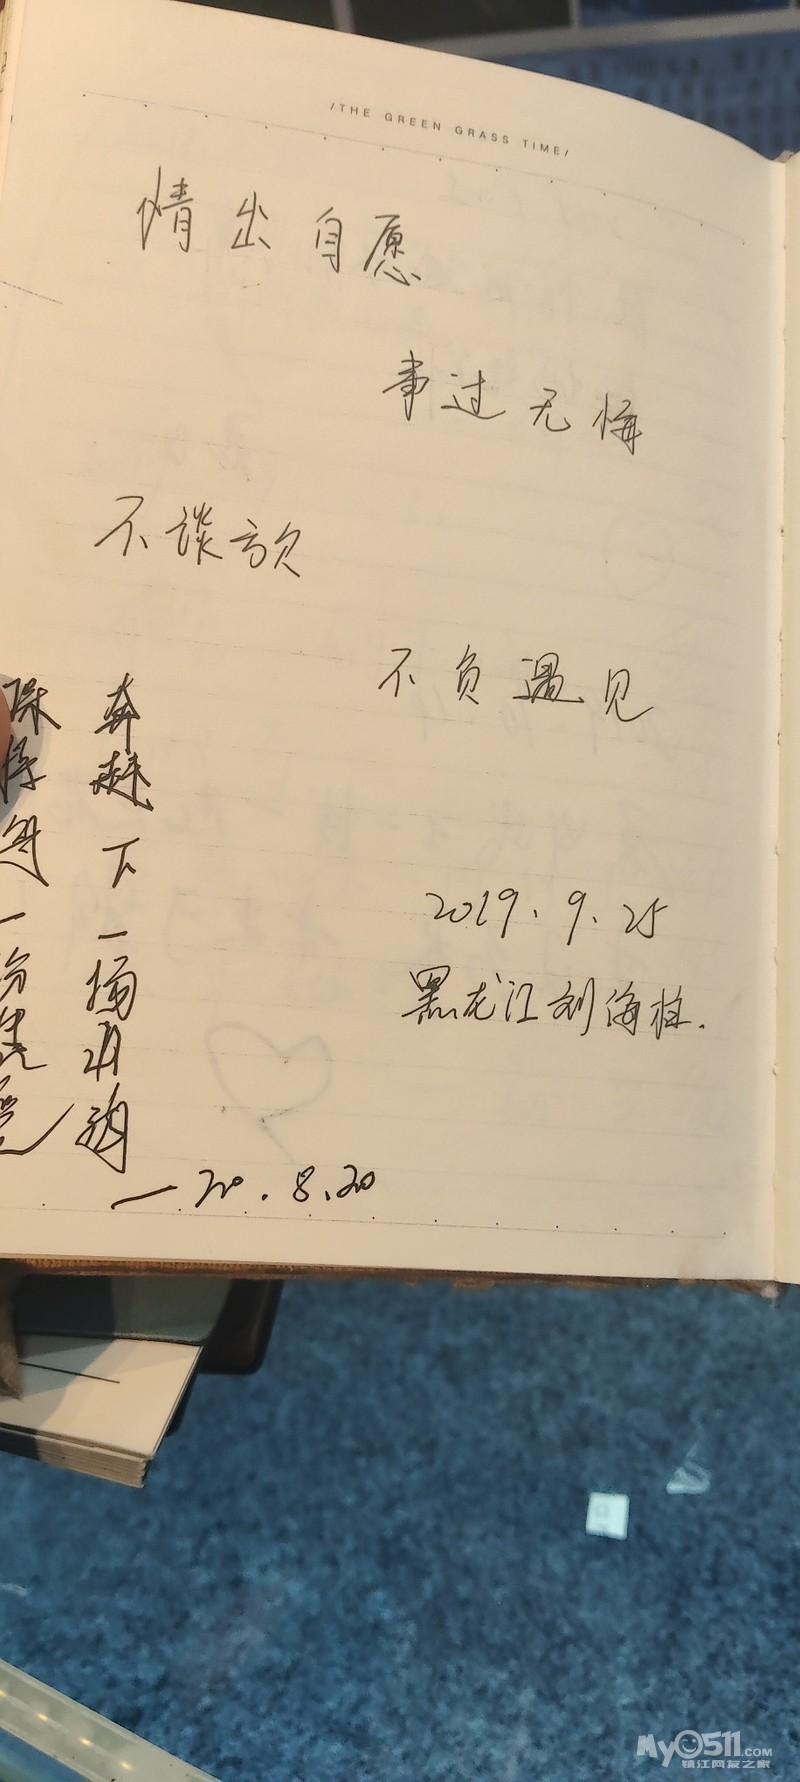 /THE GREEN GRASS TIME/
情出自愿
事过无悔
不谈亏欠
不负遇见
2019.9.25
黑龙江刘海柱.
奔赴下一场
—20.8.20
My0511.COM
镇江网友之家